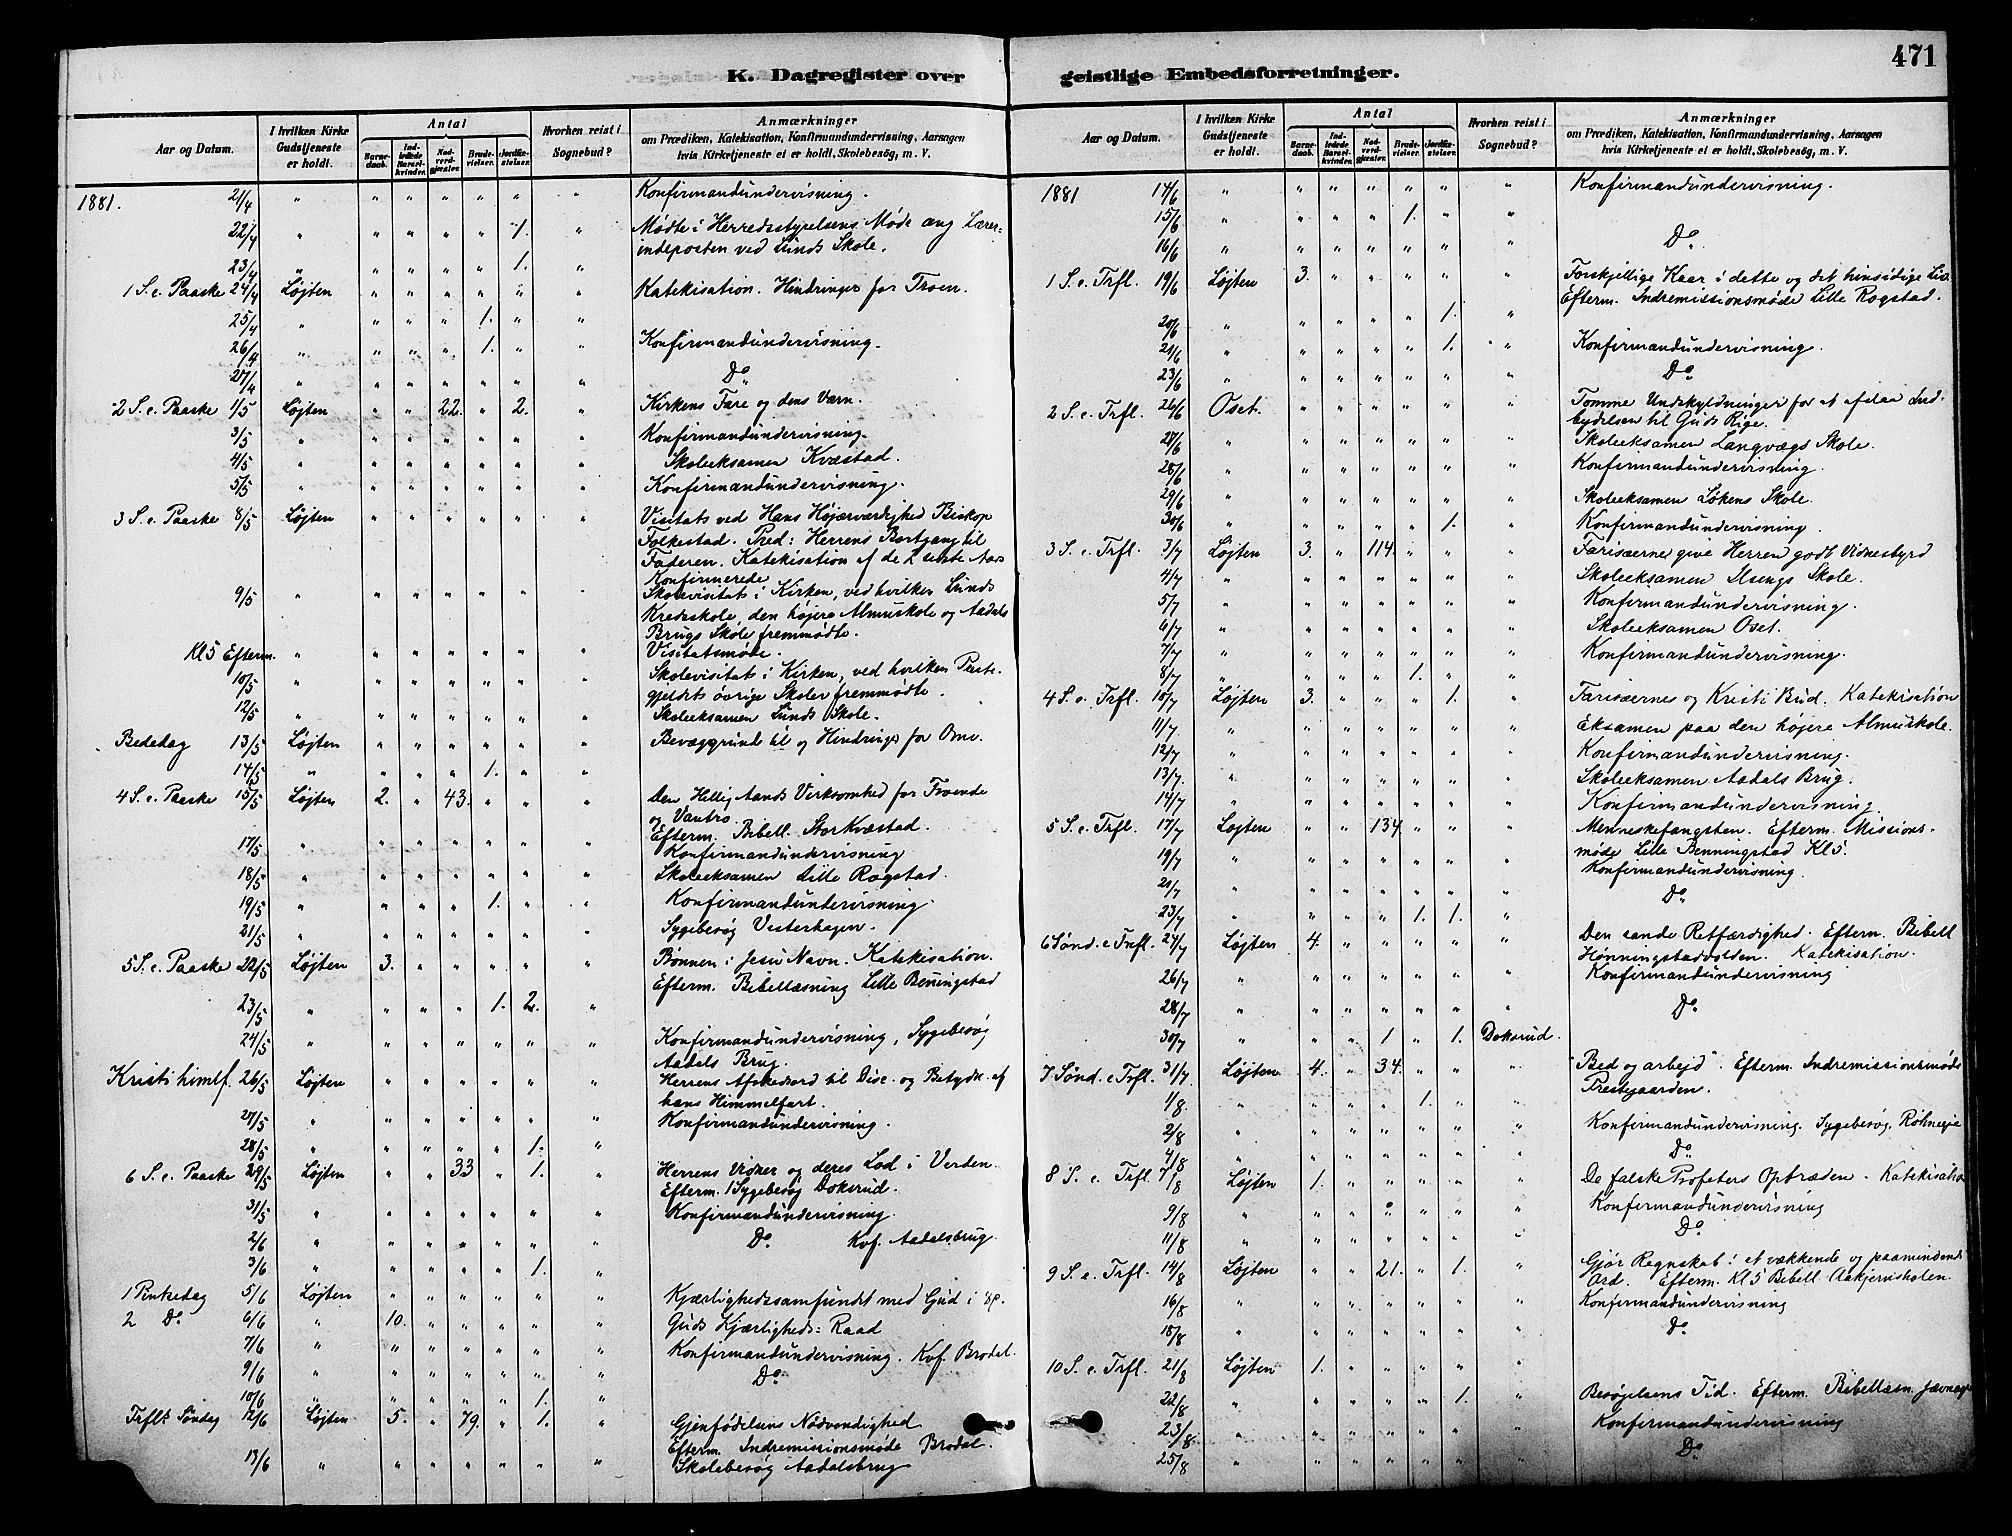 471
K. Dagregister over
Aar og Datum.
I hvilken Kirke Gudstjeneste er holdt.
Antal
Barnedaab.
Indledede Barselkvinder.
Nadverdgjæster.
Brudevielser.
Jordkastelser.
Hvorhen reist i Sognebud?
Anmærkninger
om Prædiken, Katekisation, Konfirmandundervisning, Aarsagen
hvis Kirketjeneste ei er holdt, Skolebesög, m. V.
1881. 21/4 " " " " " " " Konfirmandundervisning.
22/4 " " " " " 1. " Mødte i Herredsstyrelsens Møde ang Lærer-
indeposten ved Lunds Skole.
23/4 " " " " " 1. "
1 S. e. Paaske 24/4 Løjten " " " " " " Katekisation. Hindringer for Troen.
25/4 " " " " 1. " "
26/4 " " " " 1. " " Konfirmandundervisning.
27/4 " " " " " " " Do
2 S. e. Paaske 1/5 Løjten " " 22. " 2. " Kirkens Fare og dens Værn.
3/5 " " " " " " " Konfirmandundervisning.
4/5 " " " " " " " Skoleeksamen Kvæstad.
5/5 " " " " " " " Konfirmandundervisning.
3 S. e. Paaske 8/5 Løjten " " " " " " Visitats ved Hans Højærværdighed Biskop
Folkestad. Præd: Herrens Bortgang til
Faderen. Katekisation af de 2 sidste Aars
Konfirmerede
9/5 " " " " " " " Skolevisitats i Kirken, ved hvilken Lunds
Kredsskole, den højere Almuskole og Aadals
Brugs Skole fremmødte.
Kl 5 Efterm. " " " " " " " Visitatsmøde.
10/5 " " " " " " " Skolevisitats i Kirken, ved hvilken Præste-
gjeldets øvrige Skoler fremmødte.
12/5 " " " " " " " Skoleeksamen Lunds Skole.
Bededag 13/5 Løjten " " " " " " Bevæggrund til og Hindringer for Omv.
14/5 " " " " 1. " "
4 S. e. Paaske 15/5 Løjten 2. " 43. " " " Den Hellig Aands Virksomhed for Troende
og Vantro.
Efterm. Bibell. Stor Kvæstad.
17/5 " " " " " " " Konfirmandundervisning
18/5 " " " " " " " Skoleeksamen Lille Rogstad.
19/5 " " " " 1. " " Konfirmandundervisning.
21/5 " " " " " " " Sygebesøg Vesterhagen.
5 S. e. Paaske 22/5 Løjten 3. " " " " " Bønnen i Jesu Navn. Katekisation.
Efterm. Bibellæsning Lille Benningstad
23/5 " " " " 1. 2. "
24/5 " " " " " " " Konfirmandundervisning, Sygebesøg
Aadals Brug.
Kristi himlf. 26/5 Løjten " " " " " " Herrens Afskedsord til Disc. og Betydn. af
hans Himmelfart.
27/5 " " " " " " " Konfirmandundervisning.
28/5 " " " " " 1. "
6 S. e. Paaske 29/5 Løjten " " 33 " 1. " Herrens Vidner og deres Lod i Verden.
Efterm. 1 Sygebesøg Dokserud.
31/5 " " " " " " " Konfirmandundervisning.
2/6 " " " " " " " Do. Kvf. Aadalsbrug.
3/6 " " " " " 1. "
1 Pinksedag 5/6 Løjten " " " " " " Kjærlighedssamfundet med Gud i
2 Do 6/6 " 10. " " " " " Guds Kjærligheds: Raad
7/6 " " " " " " " Konfirmandundervisning. Kvf. Brodal.
9/6 " " " " " " " Do
10/6 " " " " " 1. "
Trflt. Søndag 12/6 Løjten 5. " 79. " 1. " Gjenfødelsens Nødvendighed
Efterm. Indremissionsmøde Brodal.
13/6 " " " " " " " Skolebesøg Aadalsbrug
geistlige Embedsforretninger.
Aar og Datum.
I hvilken Kirke Gudstjeneste er holdt.
Antal
Barnedaab.
Indledede Barselkvinder.
Nadverdgjæster.
Brudevielser.
Jordkastelser.
Hvorhen reist i Sognebud?
Anmærkninger
om Prædiken, Katekisation, Konfirmandundervisning, Aarsagen
hvis Kirketjeneste ei er holdt, Skolebesög, m. V.
1881 14/6 " " " " " " " Konfirmandundervisning.
15/6 " " " " 1. " "
16/6 " " " " " " " Do
1 S. e. Trfl. 19/6 Løjten 3. " " " " " Forskjellige Kaar i dette og det hinsidige Liv
Efterm. Indremissionsmøde Lille Rogstad.
20/6 " " " " " 1. "
21/6 " " " " " 1. " Konfirmandundervisning.
23/6 " " " " " " " Do
2 S. e. Trfl. 26/6 Oset. " " " " " " Tomme Undskyldninger for at afslaa Ind-
bydelsen til Guds Rige.
27/6 " " " " " " " Skoleeksamen Langvægs Skole.
28/6 " " " " " " " Konfirmandundervisning.
29/6 " " " " " " " Skoleeksamen Løkens Skole.
30/6 " " " " " 1. " Konfirmandundervisning.
3 S. e. Trfl. 3/7 Løjten 3. " 114. " " " Farisæerne give Herren godt Vidnesbyrd
4/7 " " " " " " " Skoleeksamen Ilsengs Skole.
5/7 " " " " " " " Konfirmandundervisning.
6/7 " " " " " " " Skoleeksamen Oset.
7/7 " " " " " " " Konfirmandundervisning.
8/7 " " " " 1. " "
4 S. e. Trfl. 10/7 Løjten 3. " " " 1. " Farisæernes og Kristi Bud. Katekisation
11/7 " " " " " " " Eksamen paa den højere Almuskole.
12/7 " " " " " " " Konfirmandundervisning.
13/7 " " " " " " " Skoleeksamen Aadals Brug.
14/7 " " " " " " " Konfirmandundervisning.
5 S. e. Trfl. 17/7 Løjten " " 134. " " " Menneskefangsten. Efterm. Missions-
møde Lille Benningstad Kl 5.
19/7 " " " " " " " Konfirmandundervisning.
21/7 " " " " " " " Do
23/7 " " " " 1. 1. "
6 Sønd. e Trfl. 24/7 Løjten 4. " " " " " Den sande Retfærdighed. Efterm. Bibell
Hønningstadvolden. Katekisation.
26/7 " " " " " " " Konfirmandundervisning
28/7 " " " " " " " Do
30/7 " " " 1 " 1. Dokserud.
7 Sønd. e Trfl. 31/7 Løjten 4. " 34. " " " "Bed og arbejd". Efterm. Indremissionsmøde
Prestegaarden.
1/8. " " " " 1. " "
2/8 " " " " " " " Konfirmandundervisning. Sygebesøg.
4/8 " " " " " " " Do
8 S. e. Trfl. 7/8 Løjten 1. " " " " " De falske Profeters Optræden. Katekisation
9/8 " " " " " " " Konfirmandundervisning
11/8 " " " " " " " Do
9 S. e. Trfl. 14/8 Løjten " " 21. " 1. " Gjør Regnskab! et vækkende og paamindende
Ord. Efterm. Kl 5 Bibell.
16/8 " " " " " " " Konfirmandundervisning
18/8 " " " " " " " Do
10 S. e. Trfl. 21/8 Løjten 1. " " " " "
22/8 " " " " " 1. " Besøgelsens Tid. Efterm. Bibellæsn.
23/8 " " " " " " " Konfirmandundervisning
25/8 " " " " " " " Do